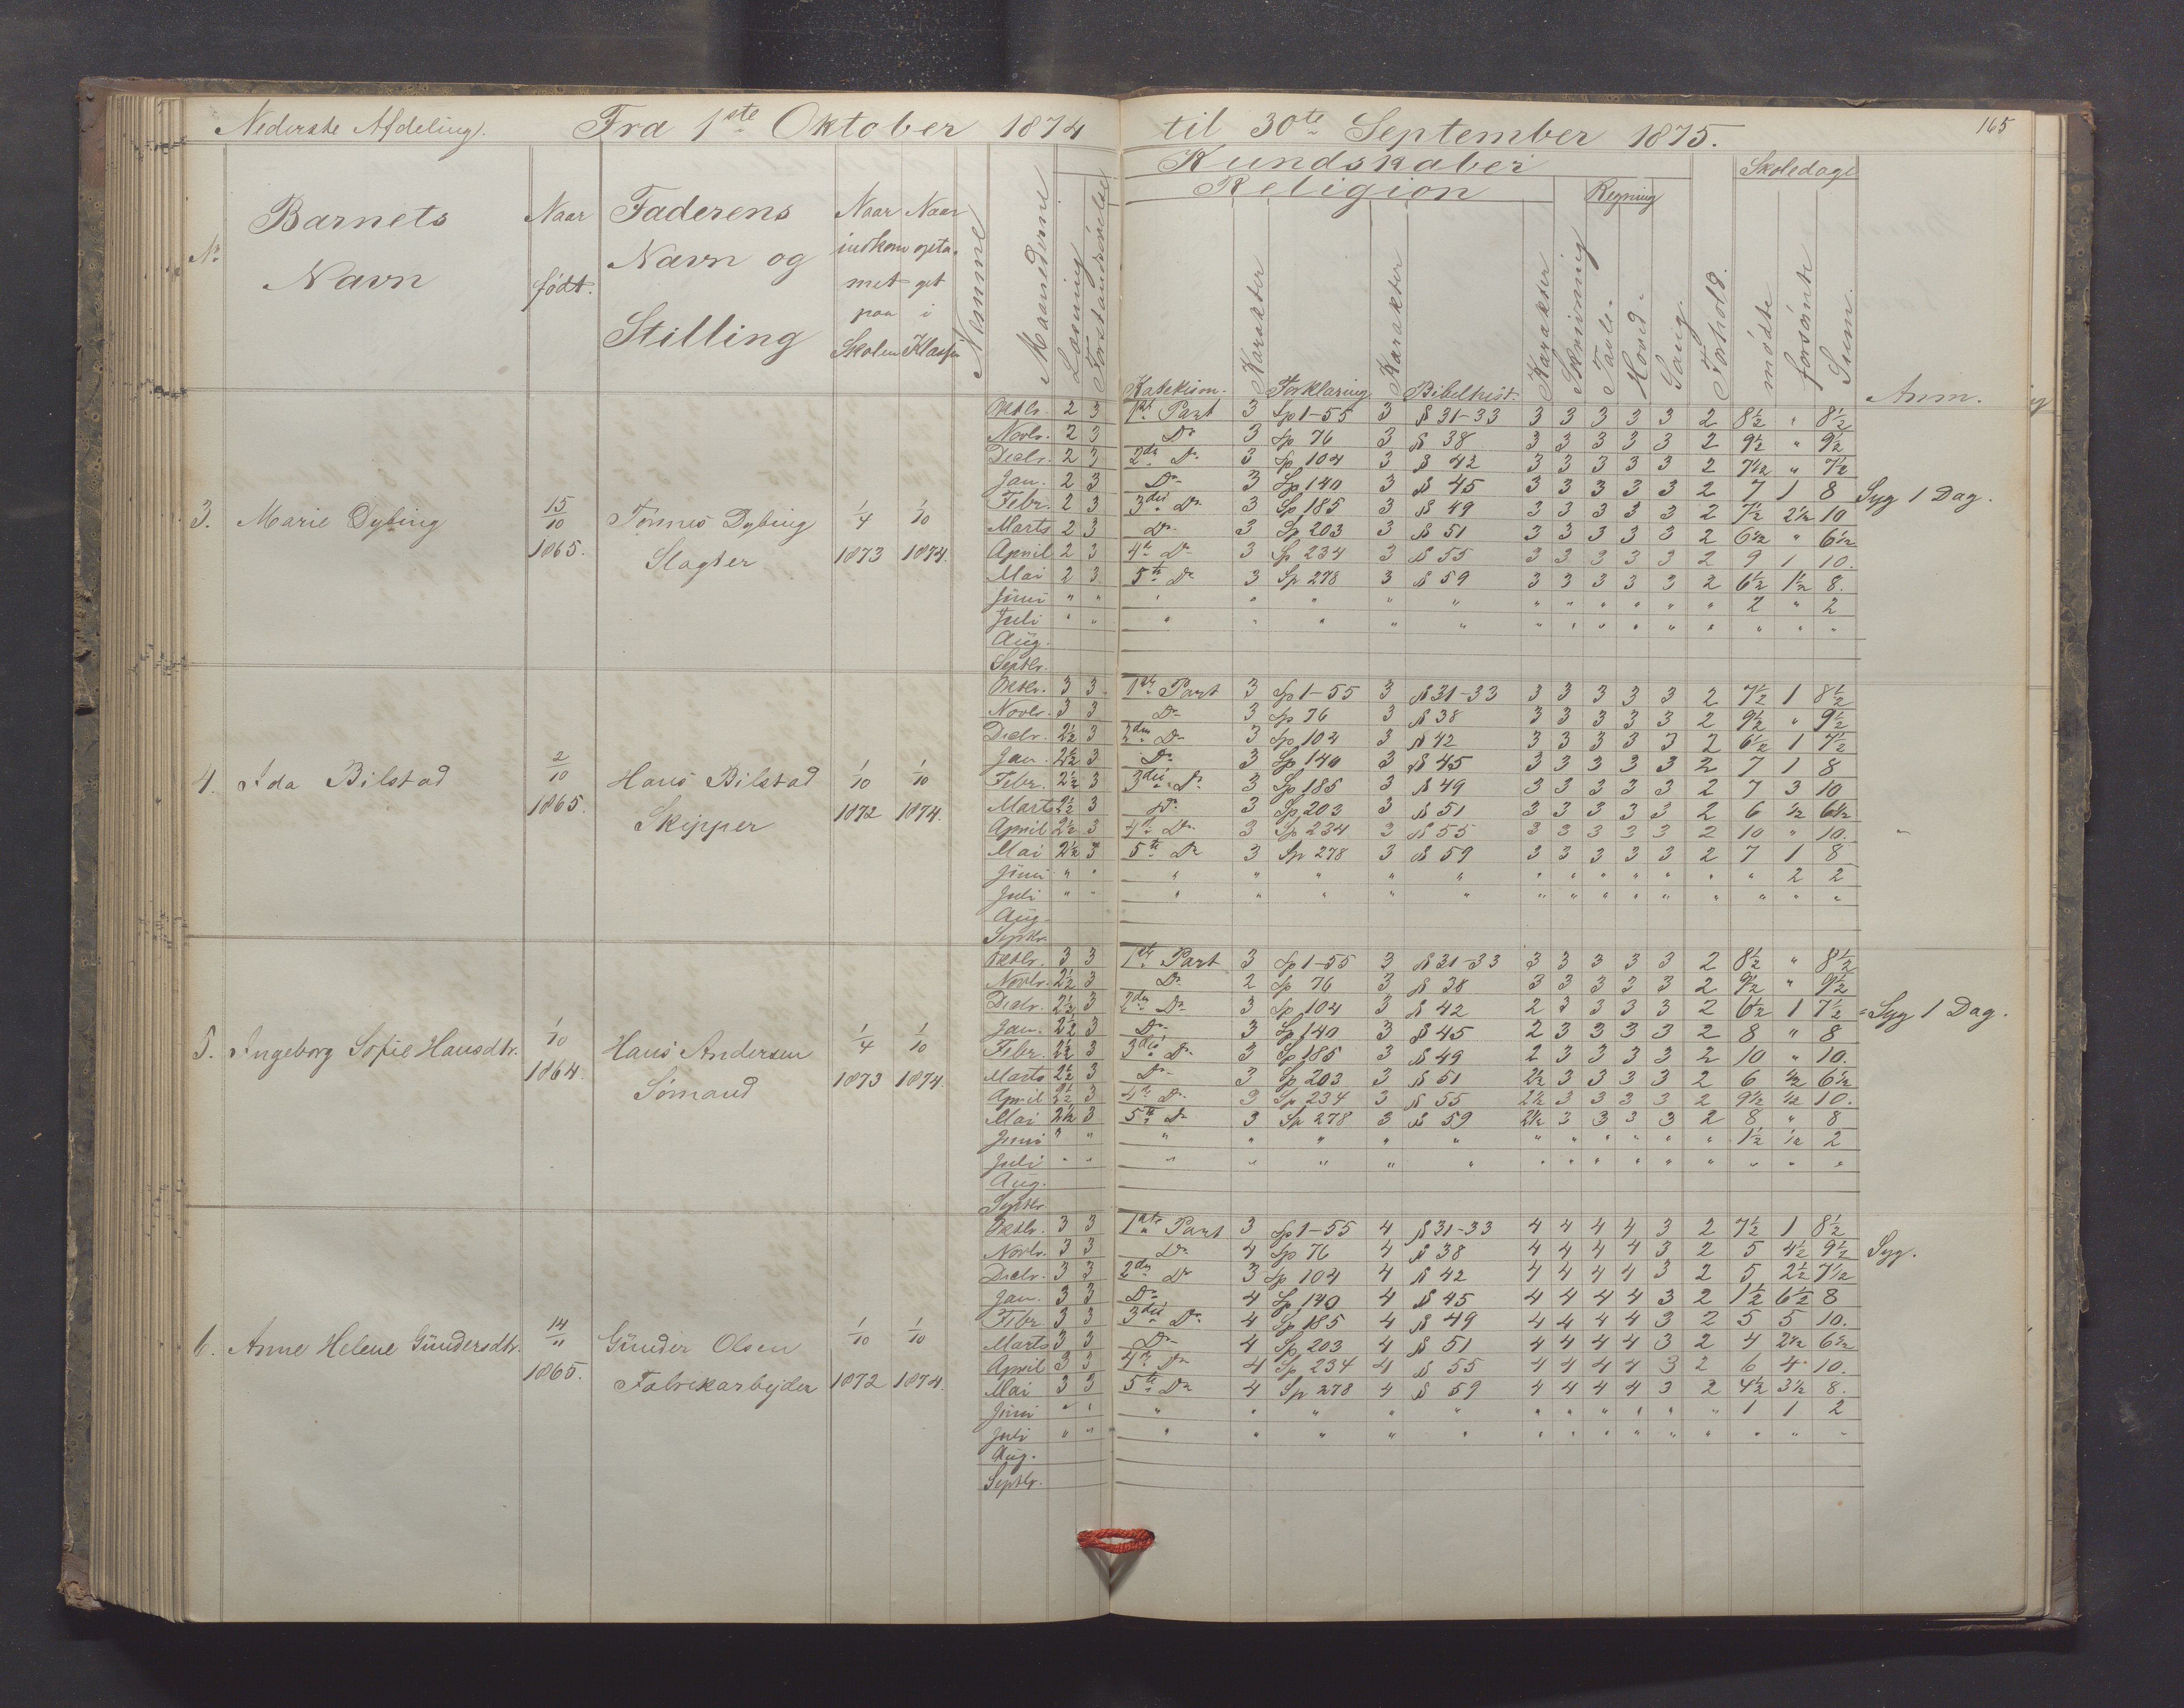 Nederste Afdeling. Fra 1ste Oktober 1874 til 30te September 1875. 165
Kundskaber Skoledage
Religion Regning
No Barnets Navn Naar født. Faderens Navn og Stilling Naar indkommet paa Skolen Naar optaget i Klassen Nesumme Maanederne Læsning Forstandsøvelse Katekism. Karakter Forklaring Karakter Bibelhist. Karakter Skrivning Tavle- Hoved- Sang Forhold. mødte forsømte Sum. Anm.
3. Marie Dybing 15/10 1865. Tønnes Dybing Slagter 1/4 1873 1/10 1874.
Oktbr. 2 3 1ste Part 3 Sp 1-55 3 § 31-33 3 3 3 3 3 2 8½ " 8½
Novbr. 2 3 Do 3 Sp 76 3 § 38 3 3 3 3 3 2 9½ " 9½
Decbr. 2 3 2den Do 3 Sp 104 3 § 42 3 3 3 3 3 2 7½ " 7½
Jan. 2 3 Do 3 Sp 140 3 § 45 3 3 3 3 3 2 7 1 8 Syg 1 Dag.
Febr. 2 3 3die Do 3 Sp 185 3 § 49 3 3 3 3 3 2 7½ 2½ 10
Marts 2 3 Do 3 Sp 203 3 § 51 3 3 3 3 3 2 6½ " 6½
April 2 3 4de Do 3 Sp 234 3 § 55 3 3 3 3 3 2 9 1 10.
Mai 2 3 5te Do 3 Sp 278 3 § 59 3 3 3 3 3 2 6½ 1½ 8.
Juni " " " " " " " " " " " " " 2 " 2
Juli " " " " " " " " " " " " " " " "
Aug.
Septbr.
4. Ida Bilstad 2/10 1865. Hans Bilstad Skipper 1/10 1872 1/10 1874.
Oktbr. 3 3 1ste Part 3 Sp 1-55 3 § 31-33 3 3 3 3 3 2 7½ 1 8½
Novbr. 3 3 Do 3 Sp 76 3 § 38 3 3 3 3 3 2 9½ " 9½
Decbr. 2½ 3 2den Do 3 Sp 104 3 § 42 3 3 3 3 3 2 6½ 1 7½
Jan. 2½ 3 Do 3 Sp 140 3 § 45 3 3 3 3 3 2 7 1 8
Febr. 2½ 3 3die Do 3 Sp 185 3 § 49 3 3 3 3 3 2 7 3 10
Marts 2½ 3 Do 3 Sp 203 3 § 51 3 3 3 3 3 2 6 ½ 6½
April 2½ 3 4de Do 3 Sp 234 3 § 55 3 3 3 3 3 2 10 " 10.
Mai 2½ 3 5te Do 3 Sp 278 3 § 59 3 3 3 3 3 2 7 1 8
Juni " " " " " " " " " " " " " " 2 2
Juli " " " " " " " " " " " " " " " "
Aug.
Septbr.
5. Ingeborg Sofie Hansdtr. 1/10 1864. Hans Andersen Sømand 1/4 1873 1/10 1874.
Oktbr. 3 3 1ste Part 3 Sp 1-55 3 § 31-33 3 3 3 3 3 2 8½ " 8½
Novbr. 2½ 3 Do 2 Sp 76 3 § 38 3 3 3 3 3 2 9½ " 9½
Decbr. 2½ 3 2den Do 3 Sp 104 3 § 42 2 3 3 3 3 2 6½ 1 7½ Syg 1 Dag.
Jan. 2½ 3 Do 3 Sp 140 3 § 45 2 3 3 3 3 2 8 " 8
Febr. 2½ 3 3die Do 3 Sp 185 3 § 49 2 3 3 3 3 2 10 " 10.
Marts 2½ 3 Do 3 Sp 203 3 § 51 2½ 3 3 3 3 2 6 ½ 6½
April 2½ 3 4de Do 3 Sp 234 3 § 55 2½ 3 3 3 3 2 9½ ½ 10.
Mai 2½ 3 5te Do 3 Sp 278 3 § 59 2½ 3 3 3 3 2 8 " 8
Juni " " " " " " " " " " " " " 1½ ½ 2
Juli " " " " " " " " " " " " " " " "
Aug.
Septbr.
6. Anne Helene Gundersdtr. 14/11 1865. Gunder Olsen Fabrikarbejder 1/10 1872 1/10 1874.
Oktbr. 3 3 1ste Part 3 Sp 1-55 4 § 31-33 4 4 4 4 3 2 7½ 1 8½
Novbr. 3 3 Do 4 Sp 76 4 § 38 4 4 4 4 3 2 5 4½ 9½ Syg.
Decbr. 3 3 2den Do 3 Sp 104 4 § 42 4 4 4 4 3 2 5 2½ 7½
Jan. 3 3 Do 4 Sp 140 4 § 45 4 4 4 4 3 2 1½ 6½ 8
Febr. 3 3 3die Do 4 Sp 185 4 § 49 4 4 4 4 3 2 5 5 10.
Marts 3 3 Do 4 Sp 203 4 § 51 4 4 4 4 3 2 4 2½ 6½
April 3 3 4de Do 4 Sp 234 4 § 55 4 4 4 4 3 2 6 4 10.
Mai 3 3 5te Do 4 Sp 278 4 § 59 4 4 4 4 3 2 4½ 3½ 8.
Juni " " " " " " " " " " " " " 1 1 2
Juli " " " " " " " " " " " " " " " "
Aug.
Septbr.